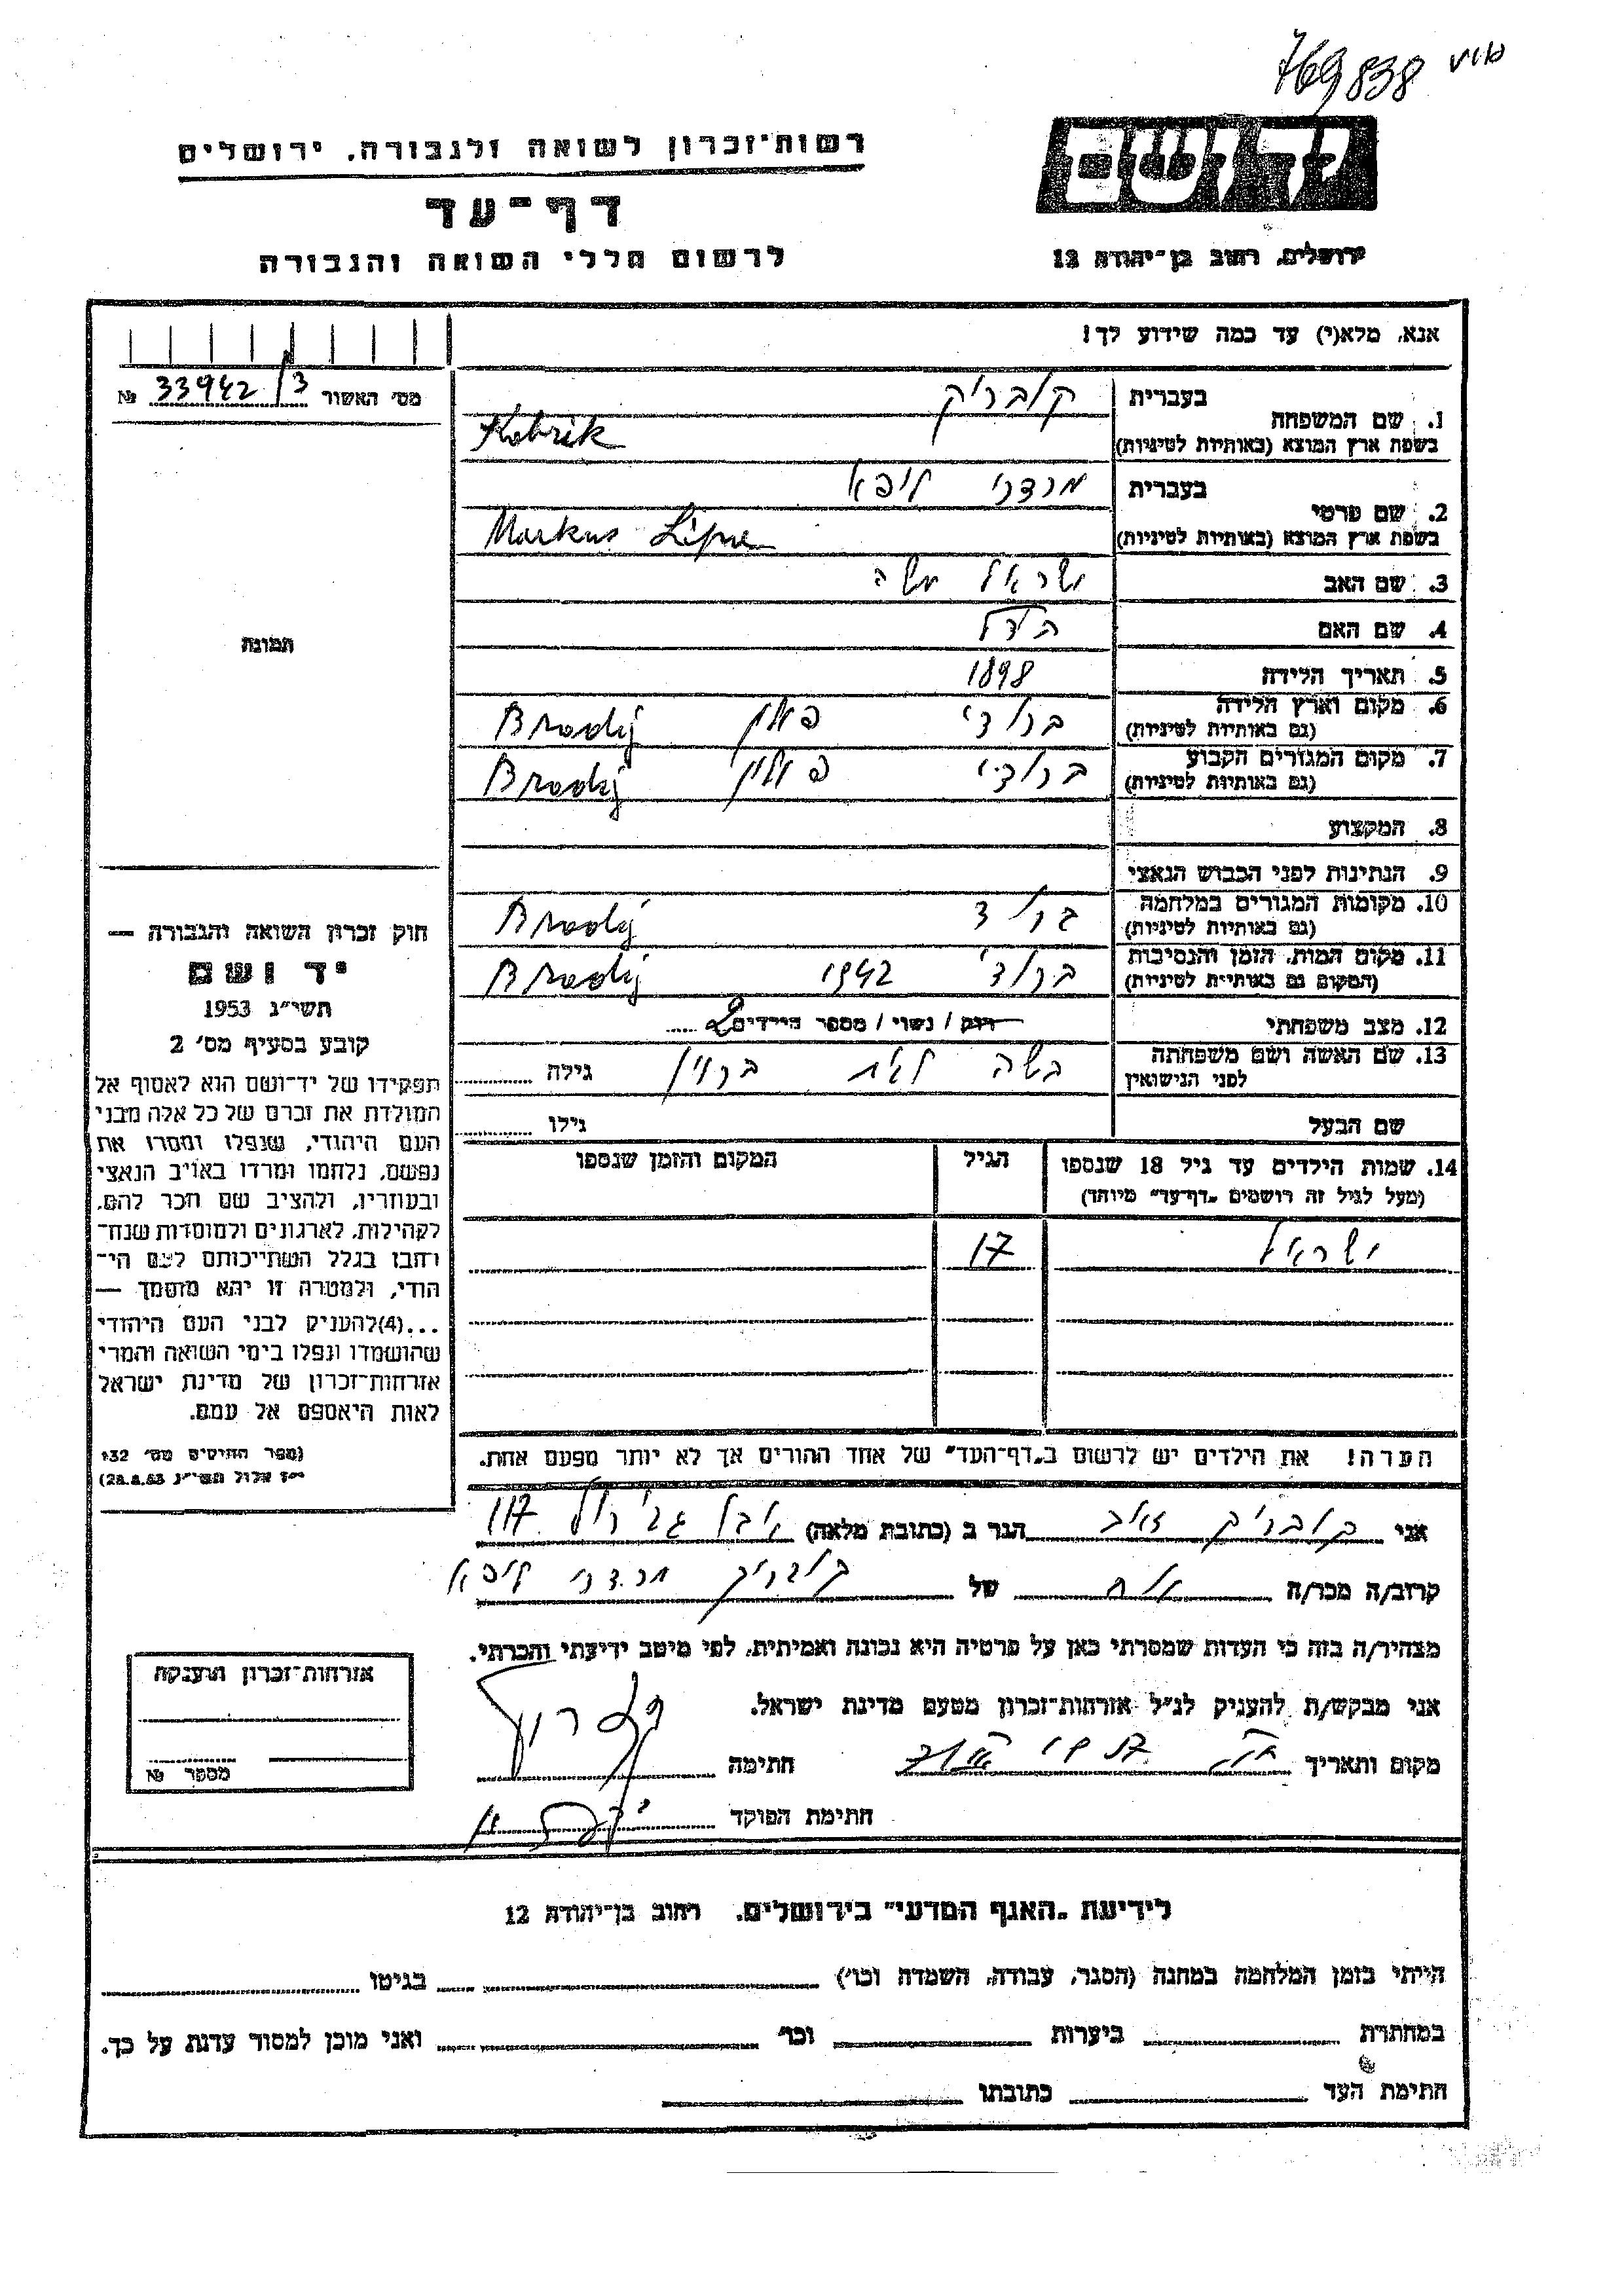 769838
יד ושם
רשות־זכרון לשואה ולגבורה, ירושלים
דף־עד
לרשום חללי השואה והגבורה
ירושלים, רחוב בן־יהודה 12
אנא, מלא(י) עד כמה שידוע לך!
מס׳ האשור 33942/3 №
תמונה
1. שם המשפחה
בעברית קובריק
בשפת ארץ המוצא (באותיות לטיניות) Kobrik
2. שם פרטי
בעברית מרדכי ליפא
בשפת ארץ המוצא (באותיות לטיניות) Markus Lipe
3. שם האב ישראל משה
4. שם האם
5. תאריך הלידה 1898
6. מקום וארץ הלידה ברודי פולין Brody
(גם באותיות לטיניות)
7. מקום המגורים הקבוע ברודי פולין Brody
(גם באותיות לטיניות)
8. המקצוע
9. הנתינות לפני הכבוש הנאצי
10. מקומות המגורים במלחמה ברוד Brody
(גם באותיות לטיניות)
11. מקום המות, הזמן והנסיבות ברודי 1942 Brody
(המקום גם באותיות לטיניות)
12. מצב משפחתי רווק / נשוי / מספר הילדים 2
13. שם האשה ושם משפחתה לפני הנישואין גילה
שם הבעל גילו
14. שמות הילדים עד גיל 18 שנספו הגיל המקום והזמן שנספו
(מעל לגיל זה רושמים „דף־עד״ מיוחד)
ישראל 17
הערה! את הילדים יש לרשום ב„דף־העד״ של אחד ההורים אך לא יותר מפעם אחת.
חוק זכרון השואה והגבורה —
יד ושם
תשי״ג 1953
קובע בסעיף מס׳ 2
תפקידו של יד־ושם הוא לאסוף אל
המולדת את זכרם של כל אלה מבני
העם היהודי, שנפלו ומסרו את
נפשם, נלחמו ומרדו באויב הנאצי
ובעוזריו, ולהציב שם וזכר להם,
לקהילות, לארגונים ולמוסדות שנח־
רבו בגלל השתייכותם לעם הי־
הודי, ולמטרה זו יהא מוסמך —
...(4)להעניק לבני העם היהודי
שהושמדו ונפלו בימי השואה והמרי
אזרחות־זכרון של מדינת ישראל
לאות היאספם אל עמם.
(ספר החוקים מס׳ 132
י״ז אלול תשי״ג 28.8.53)
אני קובריק זאב הגר ב (כתובת מלאה) אבן גבירול 117
קרוב/ה מכר/ה אח של קובריק מרדכי ליפא
מצהיר/ה בזה כי העדות שמסרתי כאן על פרטיה היא נכונה ואמיתית, לפי מיטב ידיעתי והכרתי.
אני מבקש/ת להעניק לנ״ל אזרחות־זכרון מטעם מדינת ישראל.
מקום ותאריך חתימה
חתימת הפוקד
אזרחות־זכרון הוענקה
מספר №
לידיעת „האגף המדעי״ בירושלים, רחוב בן־יהודה 12
הייתי בזמן המלחמה במחנה (הסגר, עבודה, השמדה וכו׳) בגיטו
במחתרת ביערות וכו׳ ואני מוכן למסור עדות על כך.
חתימת העד כתובתו